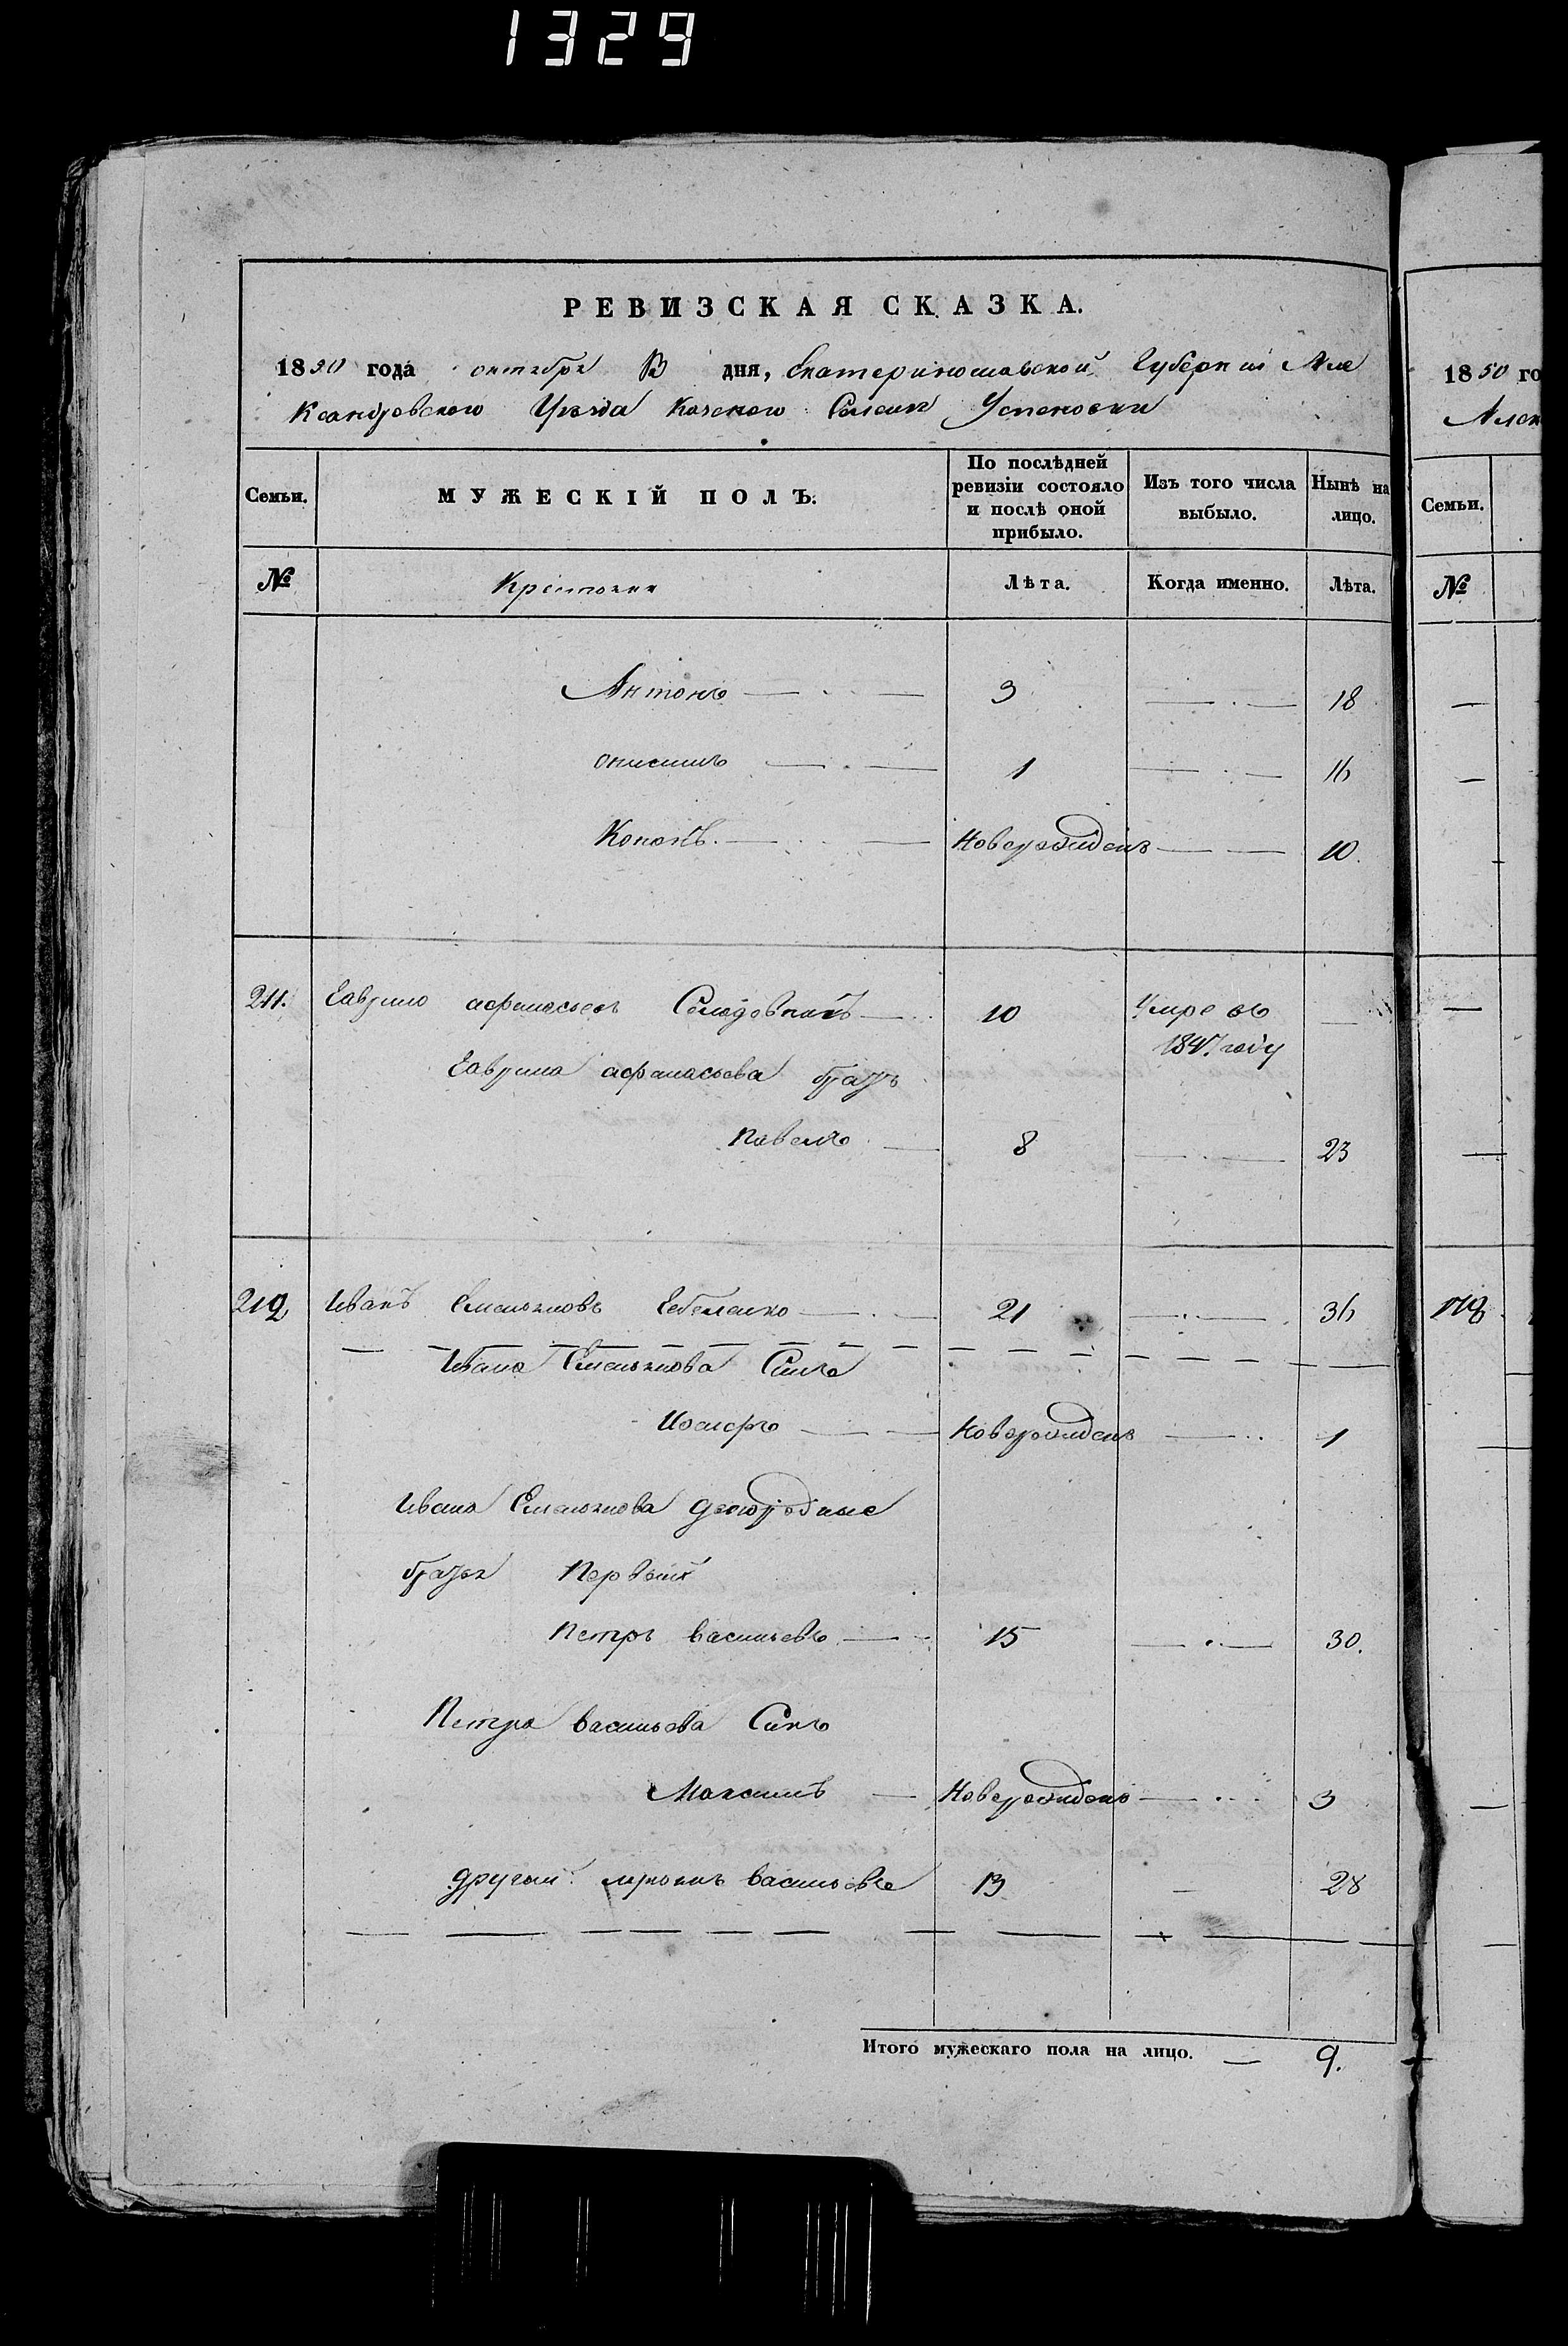 1329
РЕВИЗСКАЯ СКАЗКА.
1850 года октября 13 дня, Екатеринославской Губернии Але
ксандровского Уѣзда Казеного Селенія Успеновки
1850 го
Алек
Семьи. МУЖЕСКІЙ ПОЛЪ. По послѣдней ревизіи состояло и послѣ оной прибыло. Изъ того числа выбыло. Нынѣ на лицо.
Семьи.
№ Крестьяне Лѣта. Когда именно. Лѣта.
№
Антонъ 3 18
Онисимъ 1 16
Кононъ. Новорожденъ 10.
211. Гаврило Афанасьевъ 10 Умре въ
1847 году
Гаврила Афанасьева братъ
Павелъ 8 23
212 Иванъ Емельяновъ 21 36
Ивана Емельянова Сынъ
Іосифъ Новорожденъ 1
Ивана Емельянова двоюродные
братья Первый
Петръ Васильевъ 15 30.
Петра Васильева Сынъ
Максимъ Новорожденъ 3
другий Васильевъ 13 28
Итого мужескаго пола на лицо. 9.